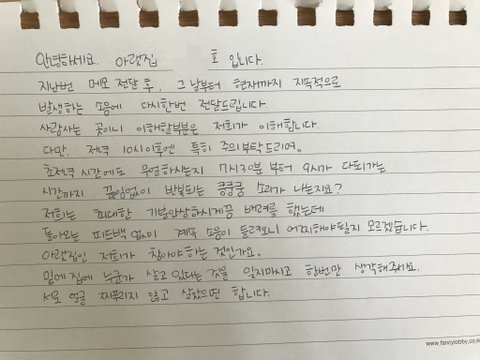 안녕하세요. 아랫집 호 입니다.
지난번 메모 전달 후, 그날부터 현재까지 지속적으로
발생하는 소음에 다시한번 전달드립니다.
사람사는 곳이니 이해할부분은 저희가 이해합니다.
다만, 저녁 10시이후엔 특히 주의부탁드리며,
초저녁시간에도 무얼하시는지 7시30분부터 9시가 다되가는
시간까지 끊임없이 반복되는 쿵쿵쿵 소리가 나는지요?
저희는 최대한 기분안상하시게끔 배려를 했는데
돌아오는 피드백 없이 계속 소음이 들려오니 어찌해야될지 모르겠습니다.
아랫집인 저희가 참아야하는 것인가요..
밑에 집에 누군가 살고 있다는 것을 잊지마시고 한번만 생각해주세요.
서로 얼굴 찌푸리지 않고 살았으면 합니다.
www.fancylobby.co.k